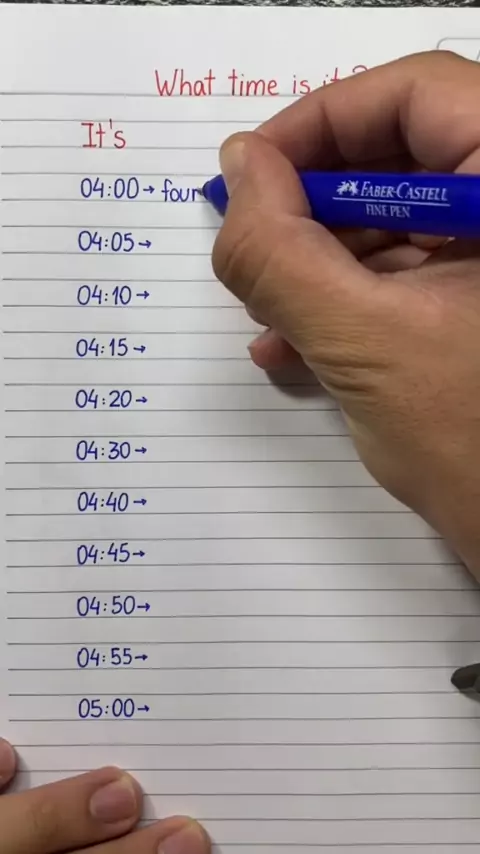 What time is it?
It's
04:00→ four
04:05→
04:10→
04:15→
04:20→
04:30→
04:40→
04:45→
04:50→
04:55→
05:00→
FABER-CASTELL
FINE PEN